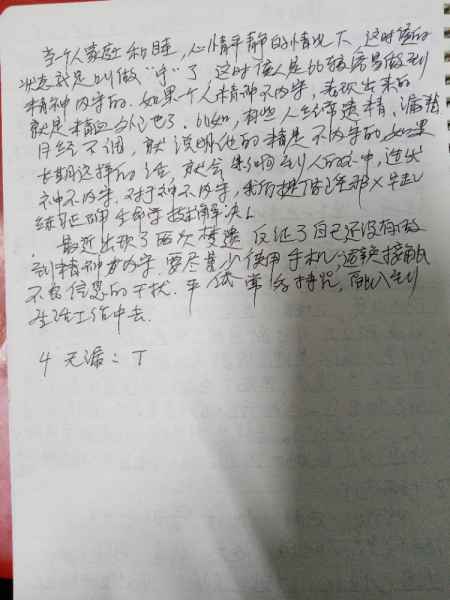 当个人家庭和睦，心情平静的情况下，这时候的
状态就是叫做"中"了，这时候人是比较容易做到
精神内守的，如果个人精神不内守，表现出来的
就是精血外泄了。比如，有些人经常遗精，漏精
月经不调，就说明他的精是不内守的。如果
长期这样的话，就会影响到人的心中，造成
神不内守。对于神不内守，我们提倡
练习延命生命学技术解决。
最近出现了两次梦遗，反证了自己还没有做
到精神内守。要尽量少使用手机，避免接触
不良信息的干扰。平时常念持咒，融入到
生活工作中去。
4 无漏：丁